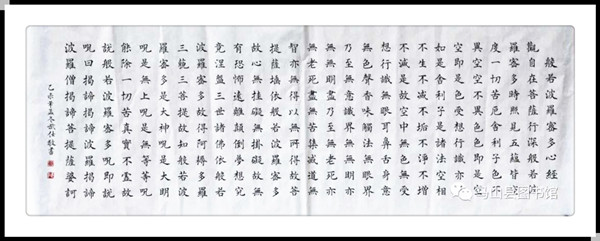 般若波羅蜜多心經
觀自在菩薩行深般若波
羅蜜多時照見五蘊皆空
度一切苦厄舍利子色不
異空空不異色色即是空
空即是色受想行識亦復
如是舍利子是諸法空相
不生不滅不垢不淨不增
不減是故空中無色無受
想行識無眼耳鼻舌身意
無色聲香味觸法無眼界
乃至無意識界無無明亦
無無明盡乃至無老死亦
無老死盡無苦集滅道無
智亦無得以無所得故菩
提薩埵依般若波羅蜜多
故心無挂礙無掛礙故無
有恐怖遠離顛倒夢想究
竟涅槃三世諸佛依般若
波羅蜜多故得阿耨多羅
三藐三菩提故知般若波
羅蜜多是大神呪是大明
呪是無上呪是無等等呪
能除一切苦真實不虛故
說般若波羅蜜多呪即說
呪曰揭諦揭諦波羅揭諦
波羅僧揭諦菩提薩婆訶
乙未年孟冬敬書
马山县图书馆